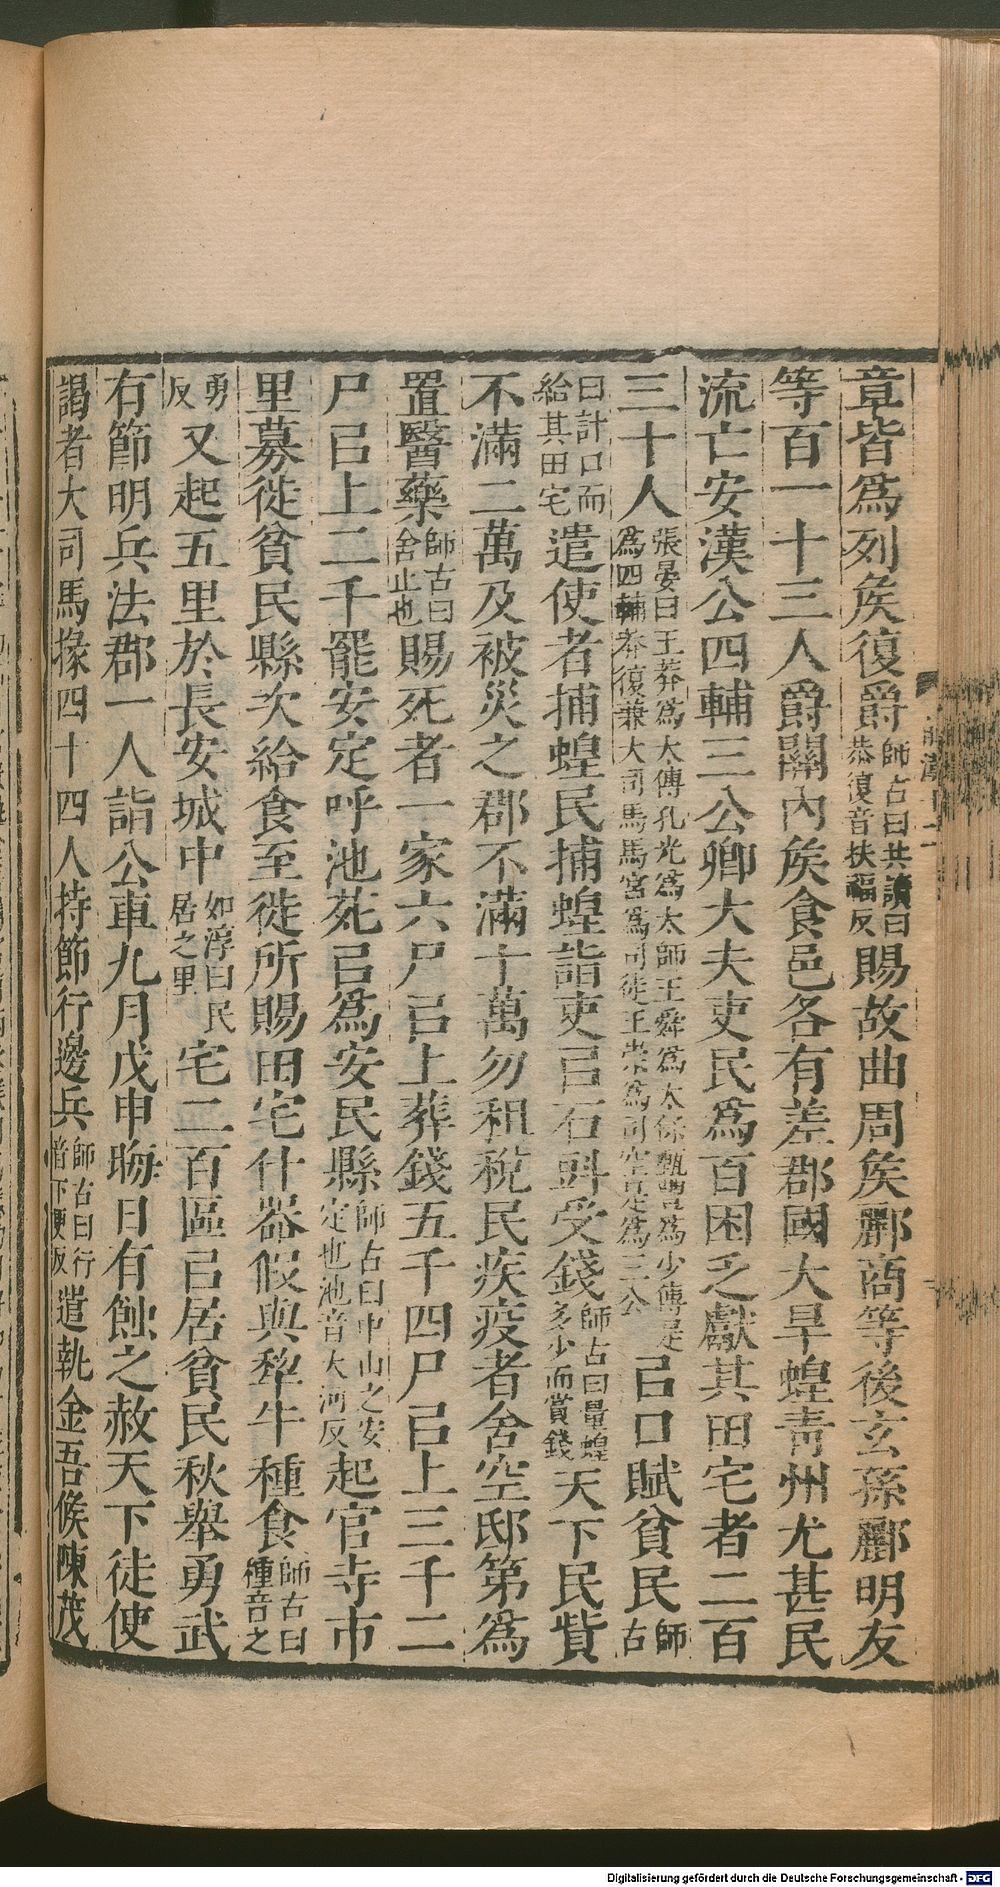 章皆爲列矦復爵師古曰共讀曰恭復音扶福反賜故曲周矦酈商等後玄孫酈明友
等百一十三人爵關內矦食邑各有差郡國大旱蝗青州尤甚民
流亡安漢公四輔三公卿大夫吏民爲百困乏獻其田宅者二百
三十人張晏曰王莽爲太傅孔光爲太師王舜爲太保甄豐爲少傅是爲四輔莽復兼大司馬馬宮爲司徒王崇爲司空是爲三公㠯口賦貧民師古
曰計口而給其田宅遣使者捕蝗民捕蝗詣吏㠯石㪷受錢師古曰量蝗多少而賞錢天下民貲
不滿二萬及被災之郡不滿十萬勿租稅民疾疫者舍空邸第爲
置醫藥師古曰舍止也賜死者一家六尸㠯上葬錢五千四尸㠯上三千二
尸㠯上二千罷安定呼池苑㠯爲安民縣師古曰中山之安定也池音大河反起官寺市
里募徙貧民縣次給食至徙所賜田宅什器假與犂牛種食師古曰種音之
勇反又起五里於長安城中如淳曰民居之里宅二百區㠯居貧民秋舉勇武
有節明兵法郡一人詣公車九月戊申晦日有蝕之赦天下徒使
謁者大司馬掾四十四人持節行邊兵師古曰行音下更反遣執金吾候陳茂
Digitalisierung gefördert durch die Deutsche Forschungsgemeinschaft - DFG